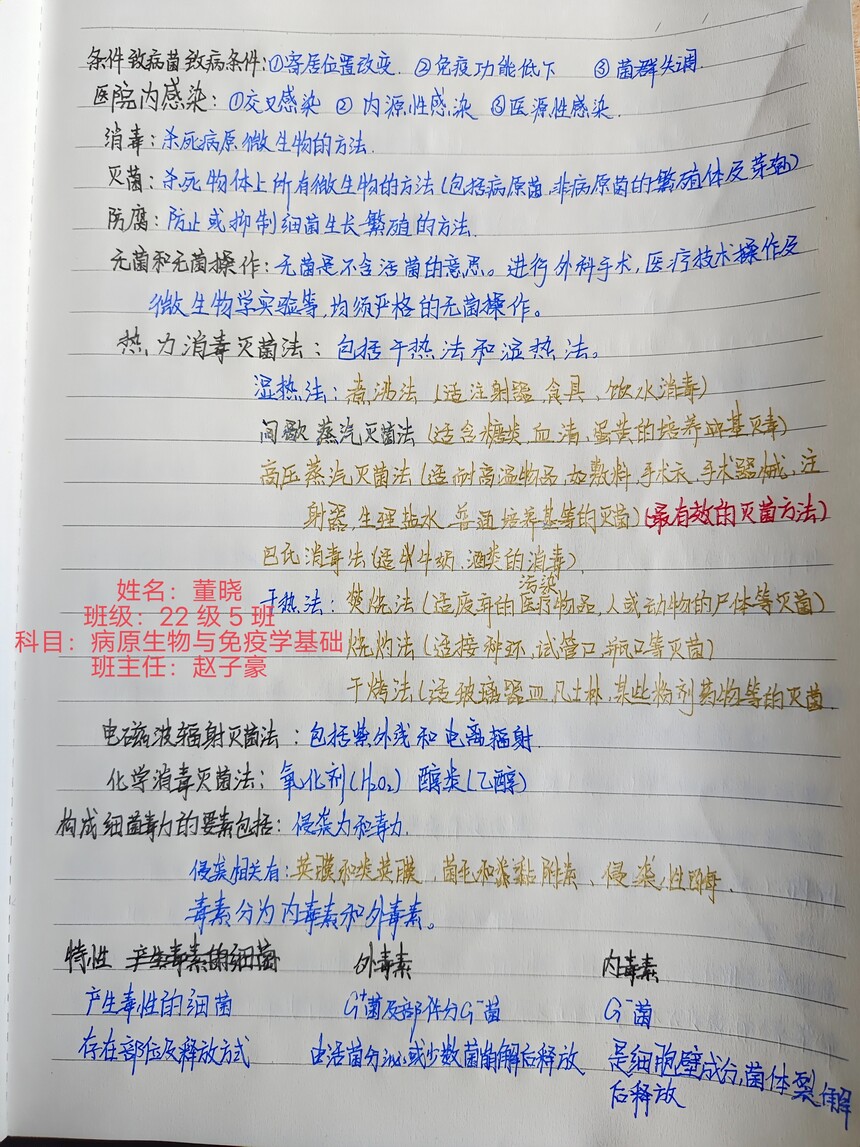 条件致病菌致病条件:①寄居位置改变 ②免疫功能低下 ③菌群失调.
医院内感染:①交叉感染 ② 内源性感染 ③医源性感染.
消毒:杀死病原微生物的方法.
灭菌:杀死物体上所有微生物的方法(包括病原菌,非病原菌的繁殖体及芽孢)
防腐:防止或抑制细菌生长繁殖的方法.
无菌和无菌操作:无菌是不含活菌的意思。进行外科手术,医疗技术操作及
微生物学实验等,均须严格的无菌操作。
热力消毒灭菌法:包括干热法和湿热法。
湿热法:煮沸法(适注射器,食具、饮水消毒)
间歇蒸汽灭菌法(适含糖类,血清,蛋黄的培养基灭毒)
高压蒸汽灭菌法(适耐高温物品,如敷料,手术衣、手术器械、注
射器,生理盐水、普通培养基等的灭菌)(最有效的灭菌方法)
巴氏消毒法(适牛奶、酒类的消毒)
污染
干热法:焚烧法(适废弃的医疗物品,人或动物的尸体等灭菌)
烧灼法(适接种环,试管口,瓶口等灭菌)
干烤法(适玻璃器皿,凡士林,某些粉剂药物等的灭菌
姓名:董晓
班级:22级5班
科目:病原生物与免疫学基础
班主任:赵子豪
电磁波辐射灭菌法:包括紫外线和电离辐射.
化学消毒灭菌法:氧化剂(H₂O₂) 醇类(乙醇)
构成细菌毒力的要素包括:侵袭力和毒力.
侵袭相关有:荚膜和类荚膜,菌毛和黏附素、侵袭性酶.
毒素分为内毒素和外毒素。
特性 产生毒素的细菌 外毒素 内毒素
产生毒性的细菌 G⁺菌及部份分G⁻菌 G⁻菌
存在部位及释放方式 由活菌分泌或少数菌崩解后释放 是细胞壁成分,菌体裂解
后释放